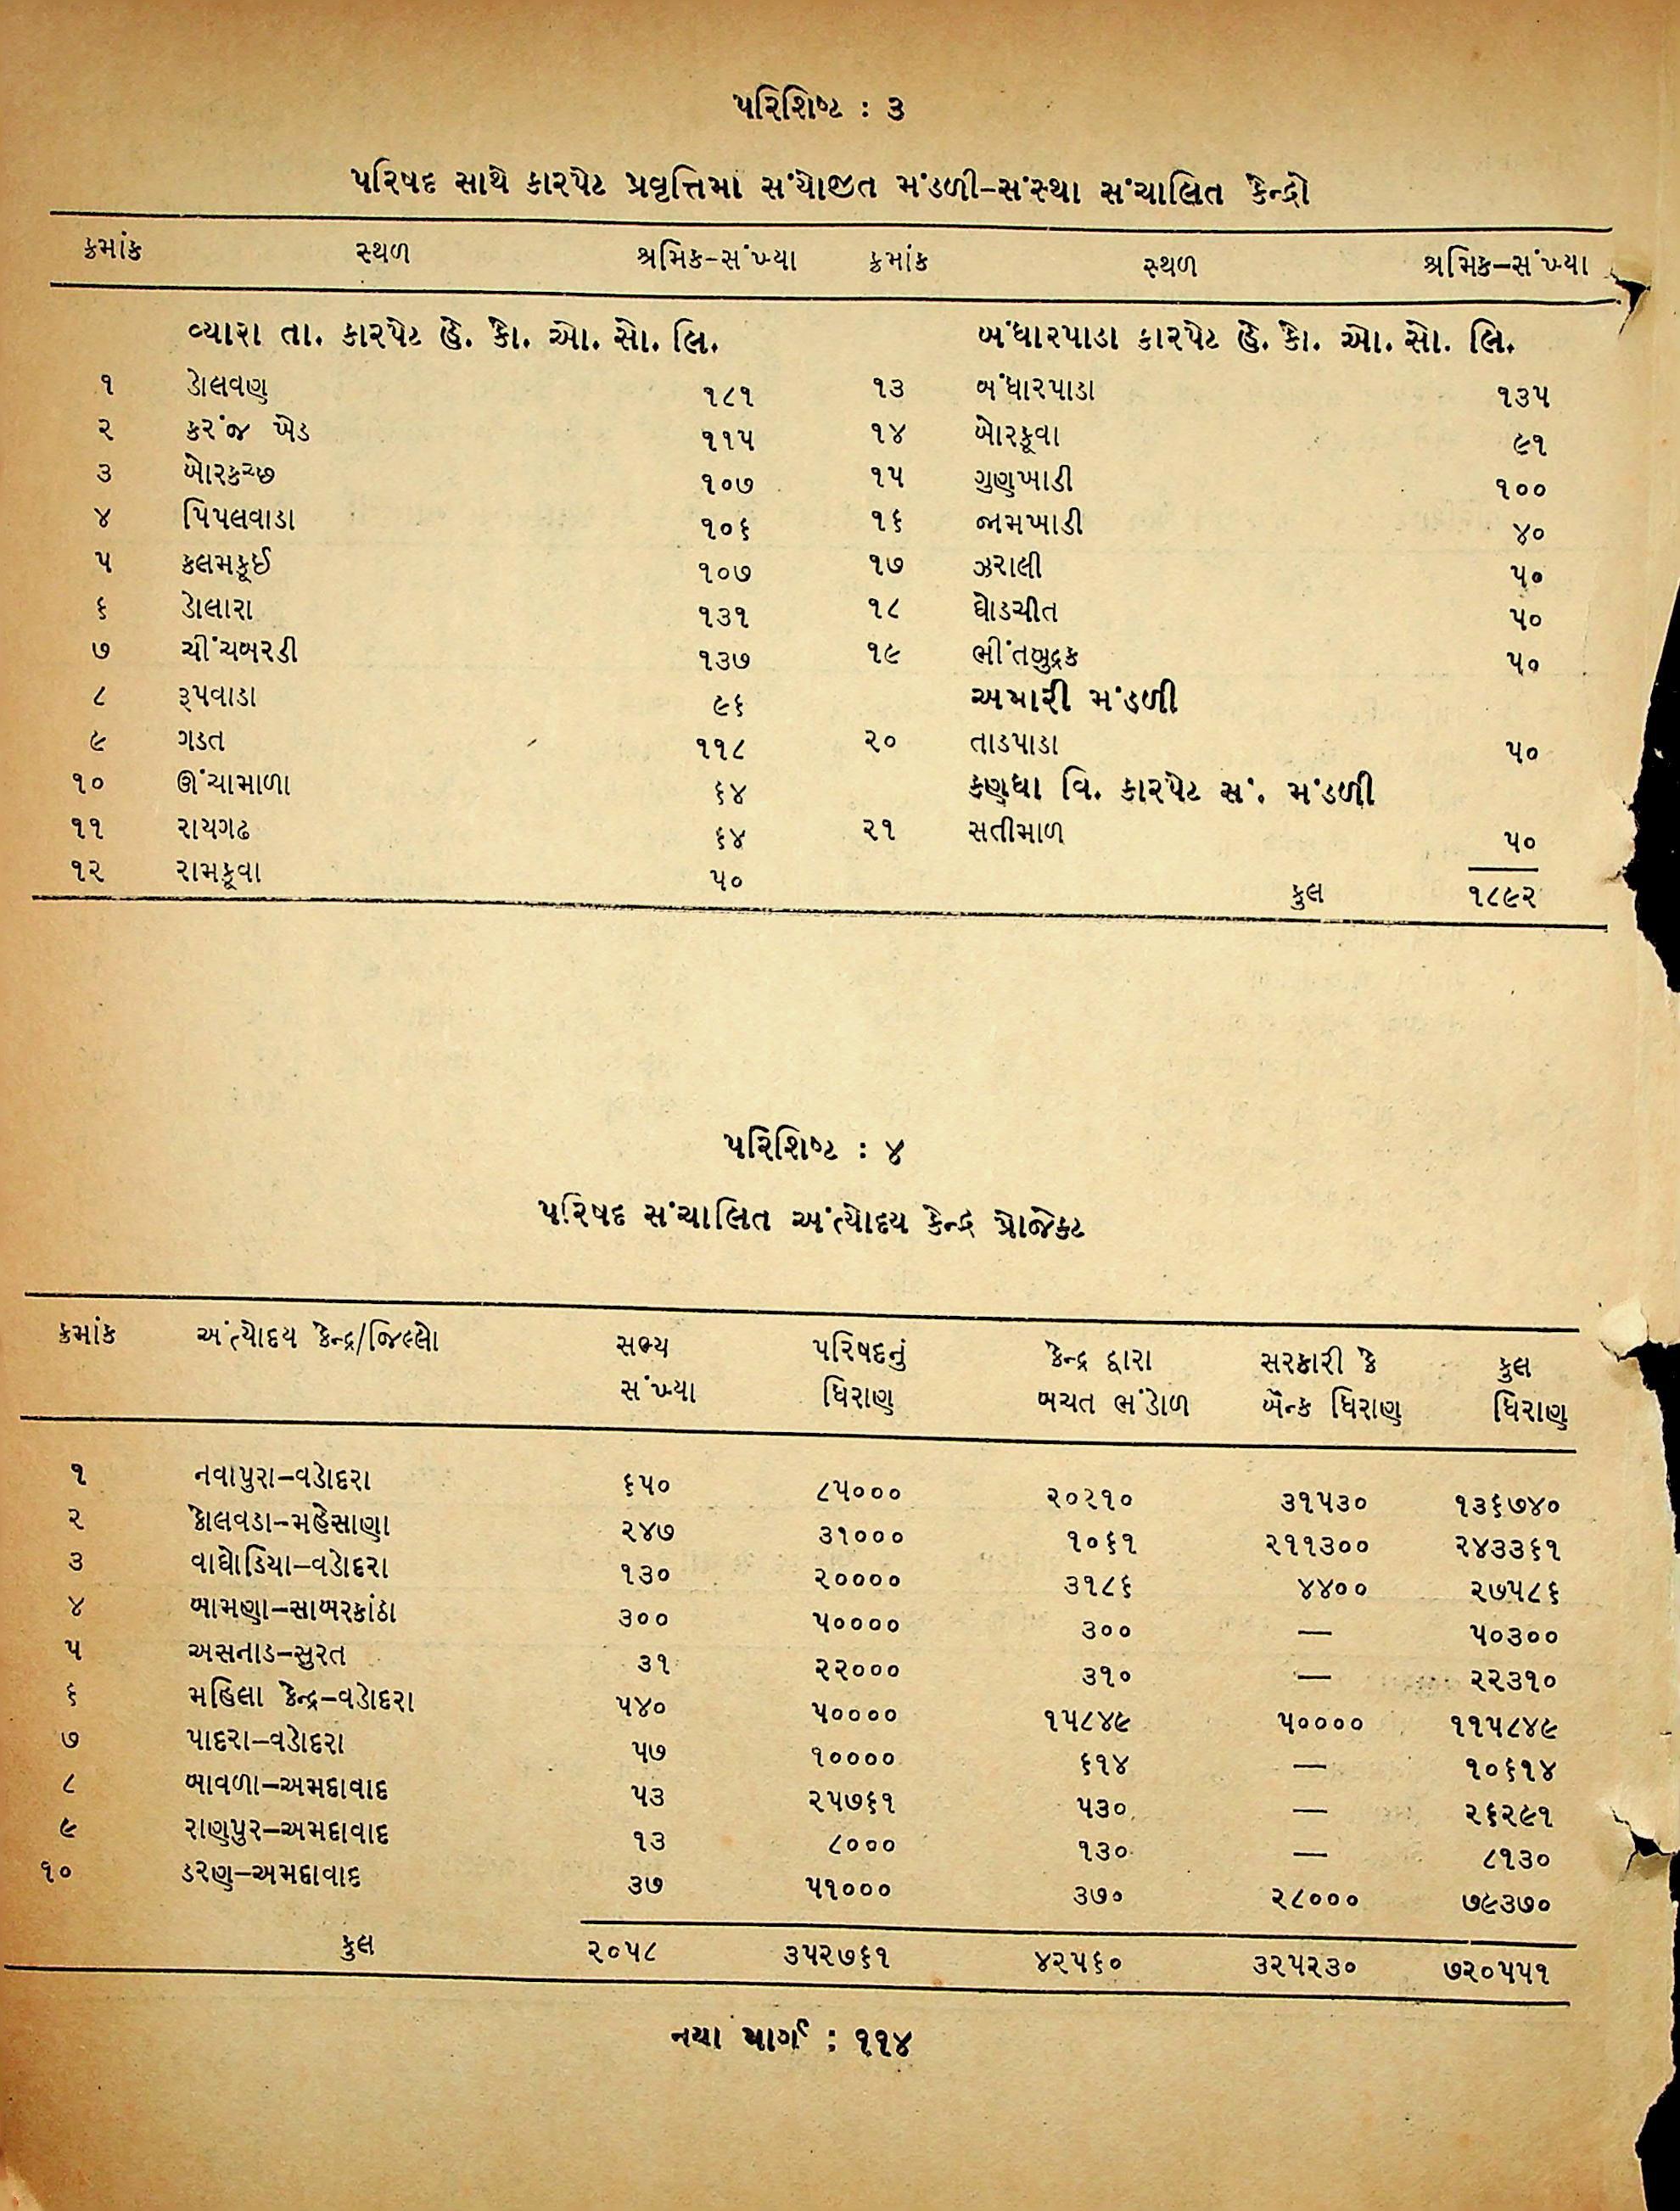 પરિશિષ્ટ : ૩
પરિષદ સાથે કારપેટ પ્રવૃત્તિમાં સંયોજીત મંડળી–સંસ્થા સંચાલિત કેન્દ્રો
ક્રમાંક સ્થળ શ્રમિક–સંખ્યા ક્રમાંક સ્થળ શ્રમિક–સંખ્યા
વ્યારા તા. કારપેટ હે. કો. ઓ. સો. લિ. બંધારપાડા કારપેટ હે. કો. ઓ. સો. લિ.
૧ ડોલવણ ૧૮૧ ૧૩ બંધારપાડા ૧૩૫
૨ કરંજ ખેડ ૧૧૫ ૧૪ બોરકૂવા ૯૧
૩ બોરકચ્છ ૧૦૭ ૧૫ ગુણખાડી ૧૦૦
૪ પિપલવાડા ૧૦૬ ૧૬ જામખાડી ૪૦
૫ કલમકૂઈ ૧૦૭ ૧૭ ઝરાલી ૫૦
૬ ડોલારા ૧૩૧ ૧૮ ઘોડચીત ૫૦
૭ ચીંચબરડી ૧૩૭ ૧૯ ભીંતબુદ્રક ૫૦
૮ રૂપવાડા ૯૬ અમારી મંડળી
૯ ગડત ૧૧૮ ૨૦ તાડપાડા ૫૦
૧૦ ઊંચામાળા ૬૪ કણધા વિ. કારપેટ સં. મંડળી
૧૧ રાયગઢ ૬૪ ૨૧ સતીમાળ ૫૦
૧૨ રામકૂવા ૫૦ કુલ ૧૮૯૨
પરિશિષ્ટ : ૪
પરિષદ સંચાલિત અંત્યોદય કેન્દ્ર પ્રોજેક્ટ
ક્રમાંક અંત્યોદય કેન્દ્ર/જિલ્લો સભ્ય પરિષદનું કેન્દ્ર દ્વારા સરકારી કે કુલ
સંખ્યા ધિરાણ બચત ભંડોળ બેંન્ક ધિરાણ ધિરાણ
૧ નવાપુરા–વડોદરા ૬૫૦ ૮૫૦૦૦ ૨૦૨૧૦ ૩૧૫૩૦ ૧૩૬૭૪૦
૨ કોલવડા–મહેસાણા ૨૪૭ ૩૧૦૦૦ ૧૦૬૧ ૨૧૧૩૦૦ ૨૪૩૩૬૧
૩ વાઘોડિયા–વડોદરા ૧૩૦ ૨૦૦૦૦ ૩૧૮૬ ૪૪૦૦ ૨૭૫૮૬
૪ બામણા–સાબરકાંઠા ૩૦૦ ૫૦૦૦૦ ૩૦૦ — ૫૦૩૦૦
૫ અસનાડ–સુરત ૩૧ ૨૨૦૦૦ ૩૧૦ — ૨૨૩૧૦
૬ મહિલા કેન્દ્ર–વડોદરા ૫૪૦ ૫૦૦૦૦ ૧૫૮૪૯ ૫૦૦૦૦ ૧૧૫૮૪૯
૭ પાદરા–વડોદરા ૫૭ ૧૦૦૦૦ ૬૧૪ — ૧૦૬૧૪
૮ બાવળા–અમદાવાદ ૫૩ ૨૫૭૬૧ ૫૩૦ — ૨૬૨૯૧
૯ રાણપુર–અમદાવાદ ૧૩ ૮૦૦૦ ૧૩૦ — ૮૧૩૦
૧૦ ડરણ–અમદાવાદ ૩૭ ૫૧૦૦૦ ૩૭૦ ૨૮૦૦૦ ૭૯૩૭૦
કુલ ૨૦૫૮ ૩૫૨૭૬૧ ૪૨૫૬૦ ૩૨૫૨૩૦ ૭૨૦૫૫૧
નયા માર્ગ : ૧૧૪